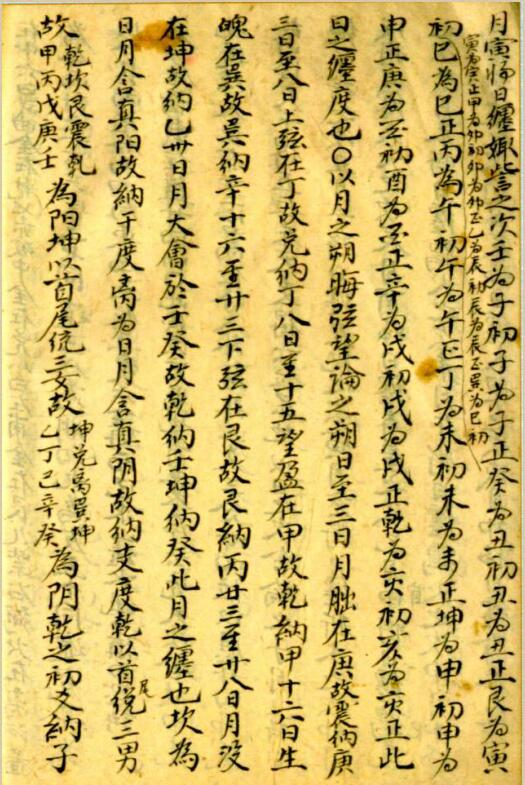 月寅將日纏娵訾之次壬為子初子為子正癸為丑初丑為丑正艮為寅
寅為寅正甲為卯初卯為卯正乙為辰初辰為辰正巽為巳初
初巳為巳正丙為午初午為午正丁為未初未為未正坤為申初申為
申正庚為酉初酉為酉正辛為戌初戌為戌正乾為亥初亥為亥正此
日之纏度也〇以月之朔晦弦望論之朔日至三日月朏在庚故震納庚
三日至八日上弦在丁故兌納丁八日至十五望盈在甲故乾納甲十六日生
魄在巽故巽納辛十六至廿三下弦在艮故艮納丙廿三至廿八日月没
在坤故納乙卅日月大會於壬癸故乾納壬坤納癸此月之纏也坎為
日月含真阳故納干度离為日月含真阴故納支度乾以首尾統三男
故乾坎艮震乹甲丙戊庚壬為阳坤以首尾统三女故坤兌离巽坤乙丁己辛癸為阴乾之初爻納子